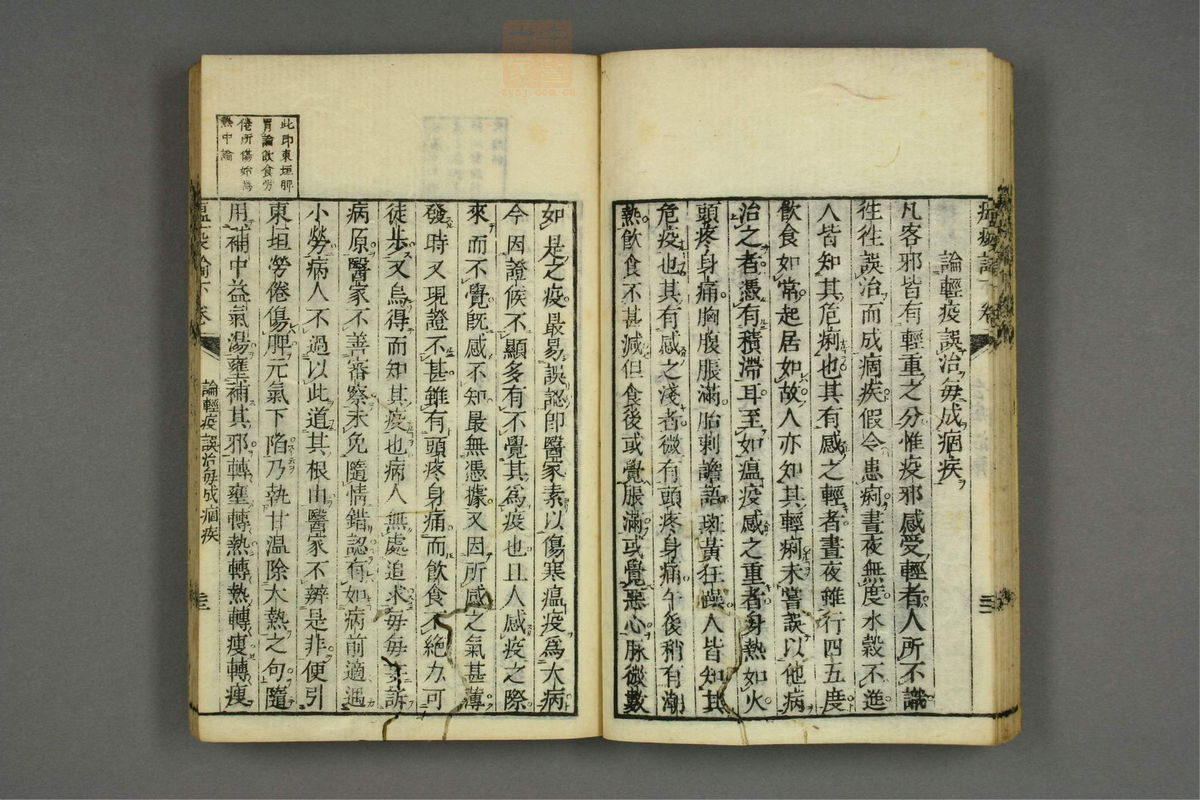 論輕疫誤治每成痼疾
凡客邪皆有輕重之分惟疫邪感受輕者人所不識
徃徃誤治而成痼疾假令患痢晝夜無度水穀不進
人皆知其危痢也其有感之輕者晝夜雖行四五度
飲食如常起居如故人亦知其輕痢未嘗誤以他病
治之者憑有積滯耳至如瘟疫感之重者身熱如火
頭疼身痛胸腹脹滿胎刺譫語斑黃狂躁人皆知其
危疫也其有感之淺者微有頭疼身痛午後稍有潮
熱飲食不甚減但食後或覺脹滿或覺惡心脉微數
如是之疫最易誤認卽醫家素以傷寒瘟疫爲大病
今因證候不顯多有不覺其爲疫也且人感疫之際
來而不覺旣感不知最無憑據又因所感之氣甚薄
發時又現證不甚雖有頭疼身痛而飲食不絶力可
徒歩又烏得而知其疫也病人無處追求毎毎妄訴
病原醫家不善審察未免隨情錯認有如病前適遇
小勞病人不過以此道其根由醫家不辨是非便引
東垣勞倦傷脾元氣下陷乃執甘溫除大熱之句隨
用補中益氣湯壅補其邪轉壅轉熱轉熱轉瘦轉瘦
此卽東垣脾
胃論飲食勞
倦所傷始爲
熱中論
瘟疫論下卷
論輕疫誤治每成痼疾
三